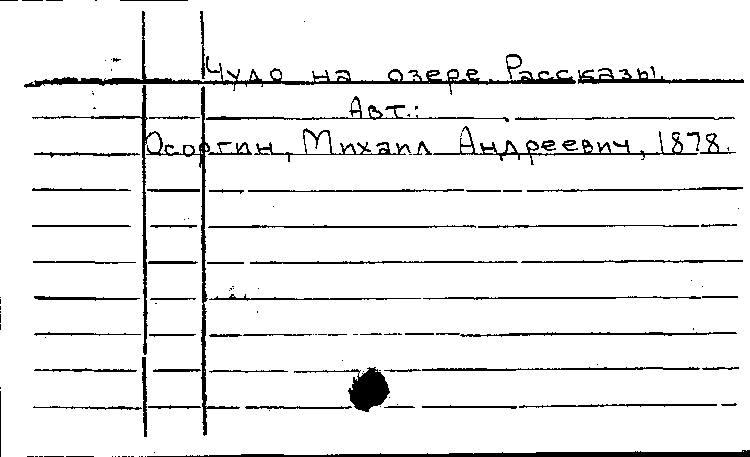 Чудо на озере. Рассказы.
Авт.:
Осоргин, Михаил Андреевич, 1878.